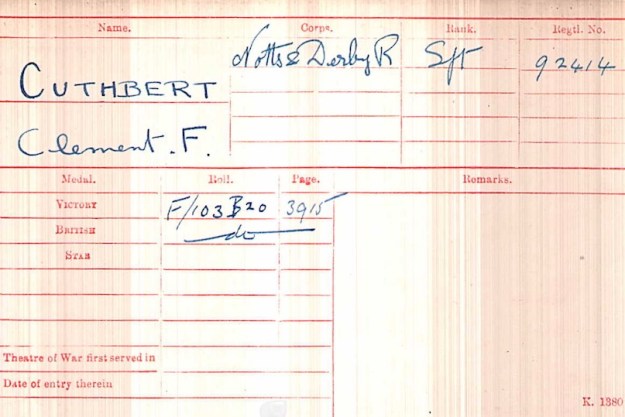 Name. Corps. Rank. Regtl. No.
CUTHBERT Notts & Derby R 92414
Clement. F.
Medal. Roll. Page. Remarks.
VICTORY F/103 B20 3915
BRITISH do
STAR
Theatre of War first served in
Date of entry therein
K. 1380